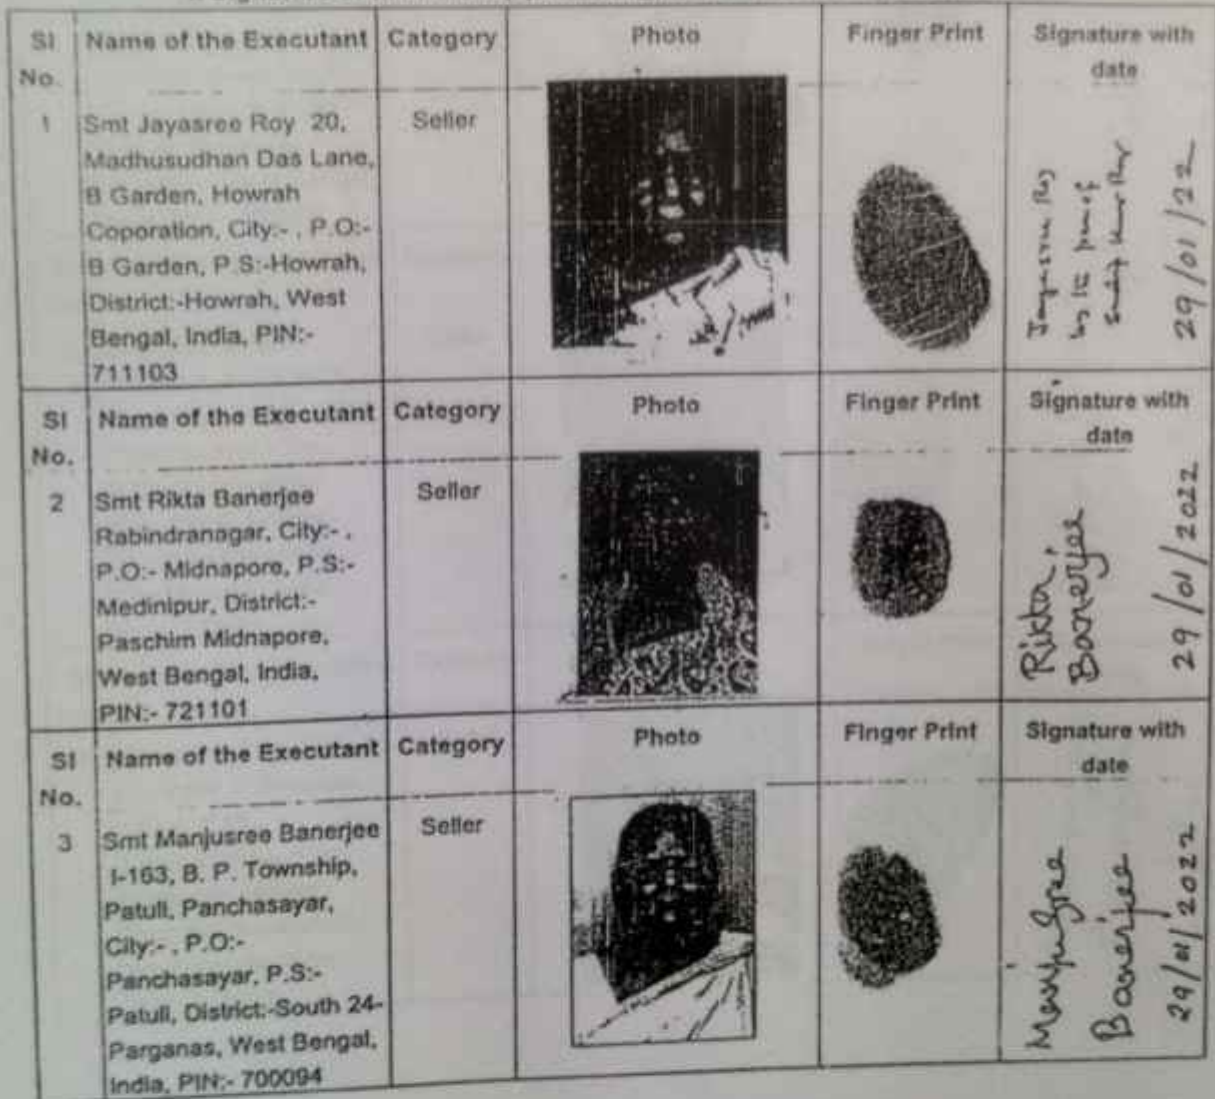 SI Name of the Executant Category Photo Finger Print Signature with
No. date
1 Smt Jayasree Roy 20, Seller
Madhusudhan Das Lane,
B Garden, Howrah
Coporation, City:- , P.O:-
B Garden, P.S:-Howrah,
District:-Howrah, West
Bengal, India, PIN:-
711103
Jayasree Roy
by the pen of
Kumar Roy
29/01/22
SI Name of the Executant Category Photo Finger Print Signature with
No. date
2 Smt Rikta Banerjee Seller
Rabindranagar, City:- ,
P.O:- Midnapore, P.S:-
Medinipur, District:-
Paschim Midnapore,
West Bengal, India,
PIN:- 721101
Rikta
Banerjee
29/01/2022
SI Name of the Executant Category Photo Finger Print Signature with
No. date
3 Smt Manjusree Banerjee Seller
I-163, B. P. Township,
Patuli, Panchasayar,
City:- , P.O:-
Panchasayar, P.S:-
Patuli, District:-South 24-
Parganas, West Bengal,
India, PIN:- 700094
Manjusree
Banerjee
29/01/2022